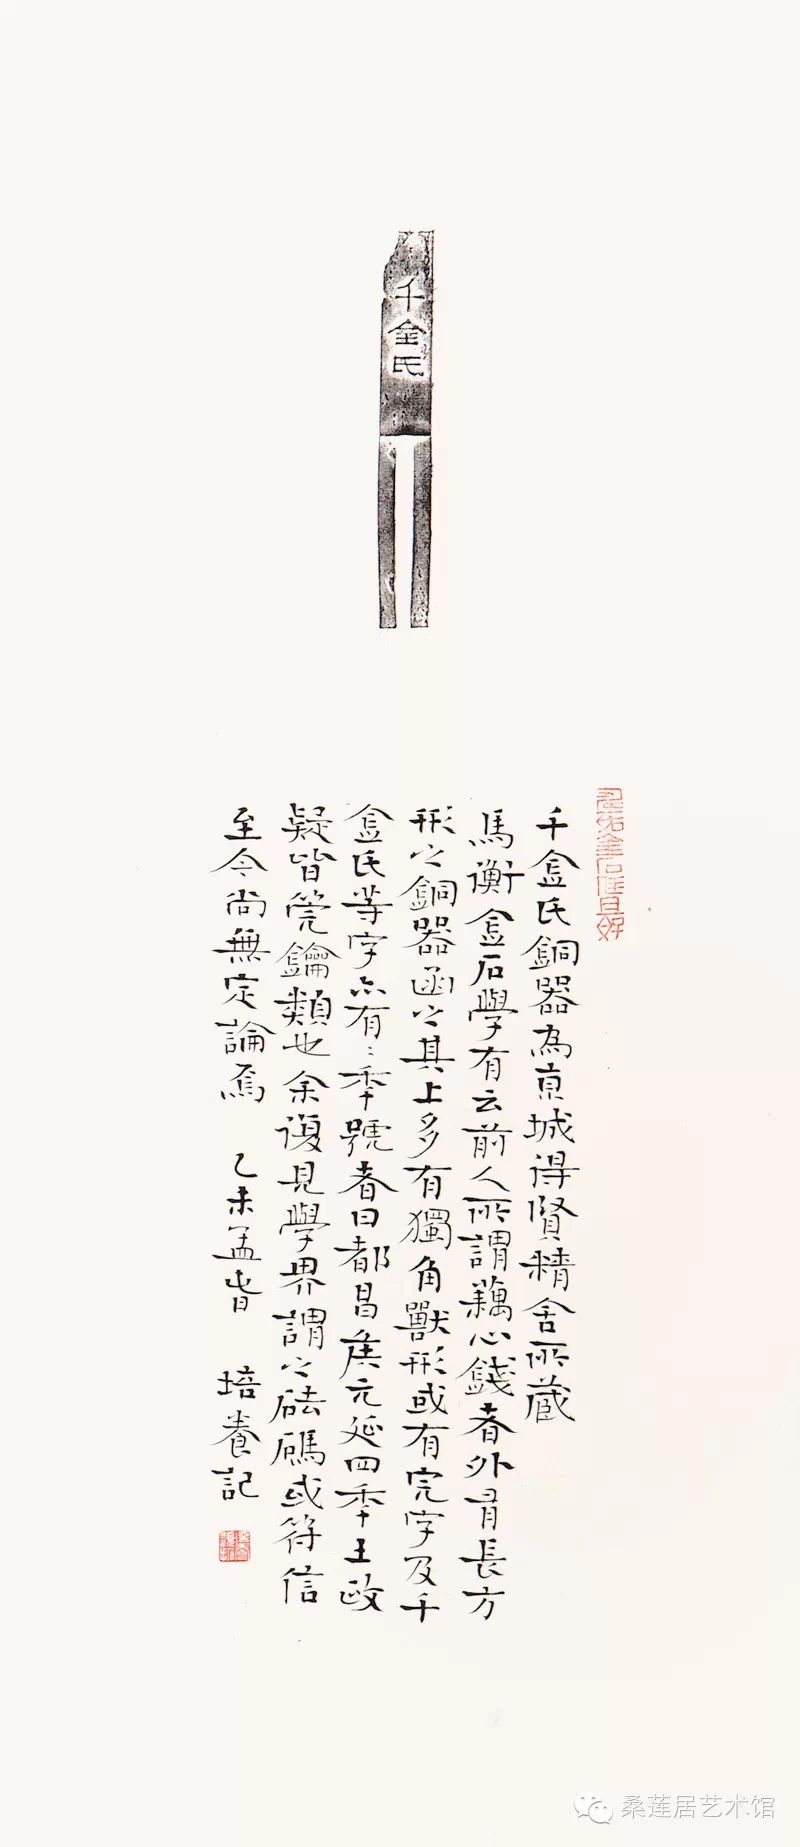 千金氏
金石佳且好
千金氏銅器為京城得賢精舍所藏
馬衡金石學有云前人所謂藕心錢者外有長方
形之銅器函之其上多有獨角獸形或有完字及千
金氏等字亦有〻年號者曰都昌侯元延四年王政
疑皆筦鑰類也余復見學界謂之砝碼或符信
至今尚無定論焉 乙未孟春 培養記
桑莲居艺术馆